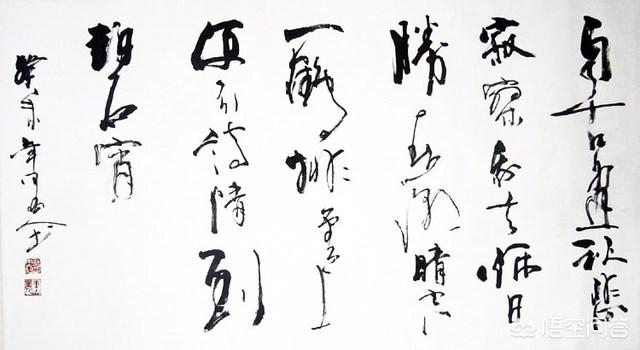 自古逢秋悲
寂寥我言秋日
勝春朝晴空
一鶴排雲上
便引詩情到
碧霄
癸未年
悟空问答